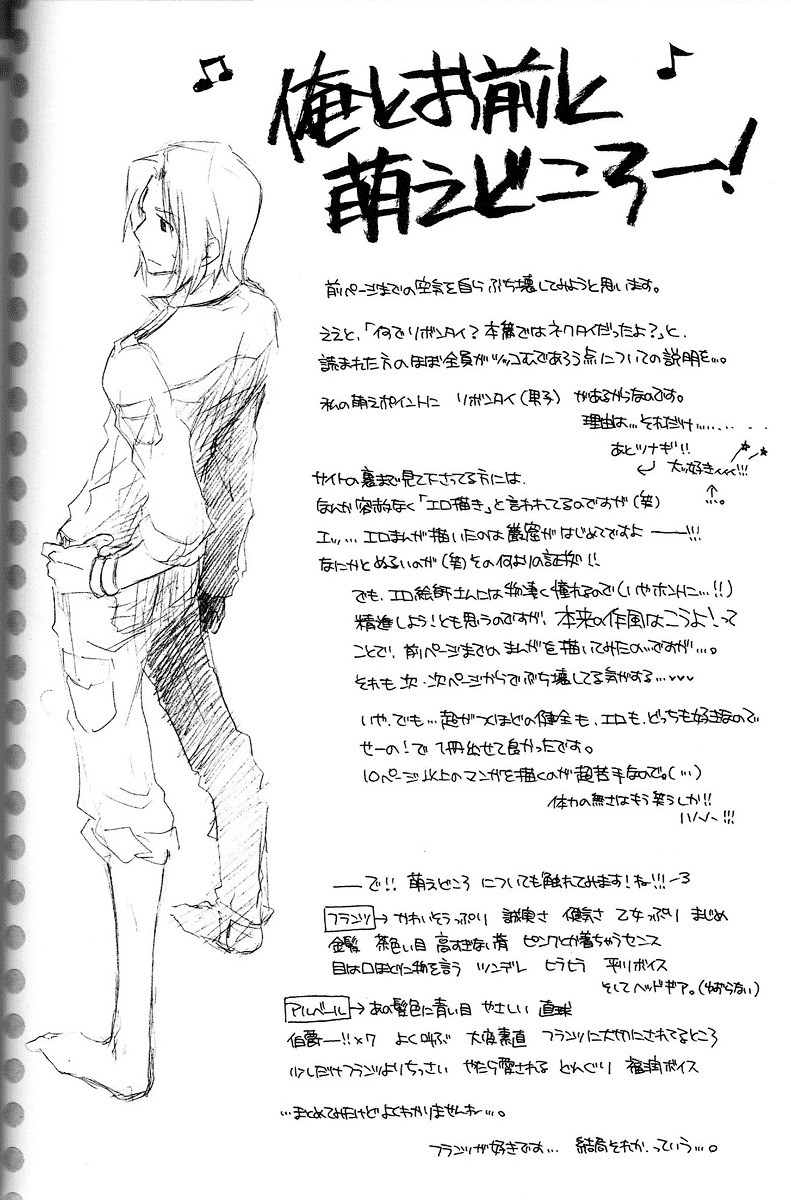 俺とお前と
萌えどころー!
前ページまでの空気を自らぶち壊してみようと思います。
ええと、「何でリボンタイ?本篇ではネクタイだったよ?」と、
読まれた方のほぼ全員がツッコむであろう点についての説明を…。
私の萌えポイントに リボンタイ(男子) があるからなのです。
理由は…それだけ……...
あとツナギ!!
大好き!!!
サイトの裏まで見て下さってる方には、
なんか容赦なく「エロ描き」と言われてるのですが(笑)
エッ… エロまんが描いたのは巌窟がはじめてですよ――!!!
なにかとぬるいのが(笑)その何よりの証拠!!
でも、エロ絵師さんには物凄く憧れるので(いやホントに…!!)
精進しよう!とも思うのですが、本来の作風はこうよ!って
ことで、前ページまでのまんがを描いてみたのですが…。
それも次・次ページからでぶち壊してる気がする…
いや、でも…超がつくほどの健全も、エロも、どっちも好きなので
せーの!で1冊出せて良かったです。
10ページ以上のマンガを描くのが超苦手なので。(…)
体力の無さはもう笑うしか!!
ハハハ!!!
――で!! 萌えどころ についても触れてみます!ねー!!!
フランツ→かわいそうっぷり 誠実さ 健気さ 乙女っぷり まじめ
金髪 茶色い目 高すぎない背 ピンクとか着ちゃうセンス
目は口ほどに物を言う ツンデレ ヒラヒラ 平川ボイス
そしてヘッドギア。(ゆずらない)
アルベール→あの髪色に青い目 やさしい 直球
伯爵―!!×7 よく叫ぶ 大度素直 フランツに大切にされてるところ
少しだけフランツよりちっさい やたら愛される どんぐり 福潤ボイス
…まとめてみたけどよくわかりませんねー…。
フランツが好きです… 結局それか、っていう…。